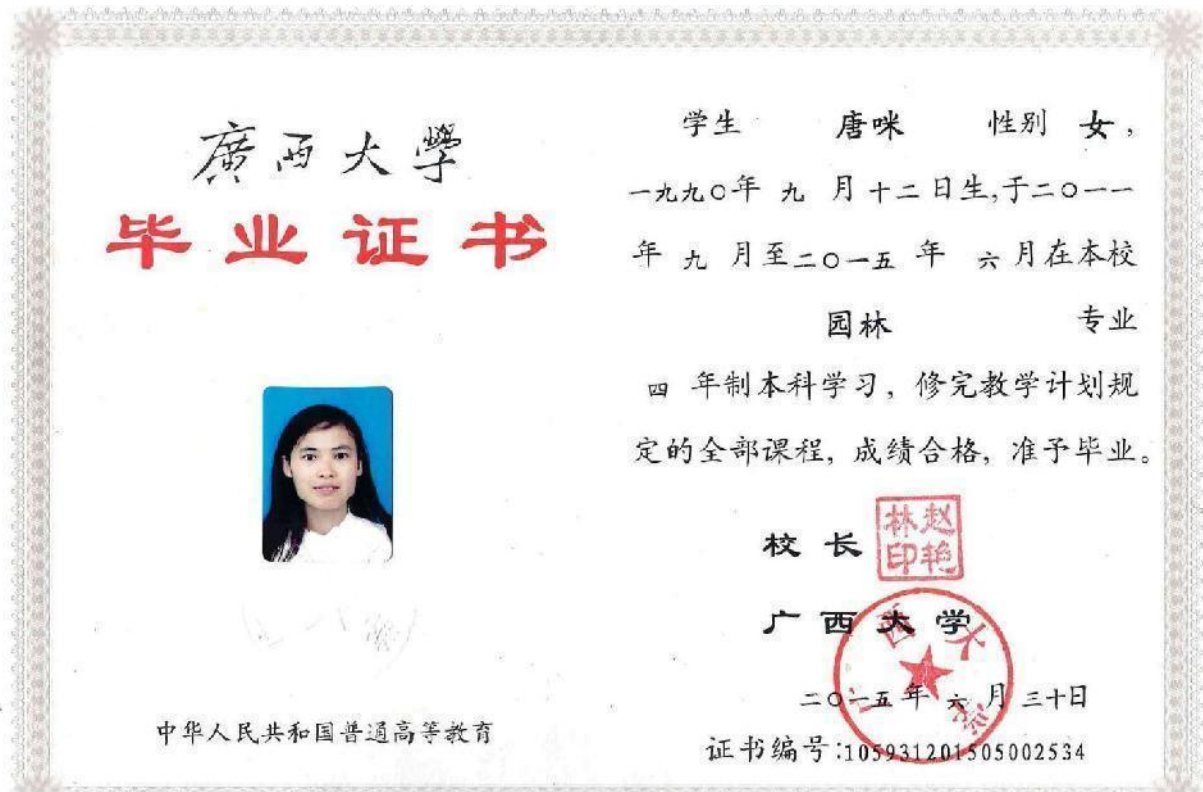 廣西大學
毕业证书
中华人民共和国普通高等教育
学生 唐咪 性别 女,
一九九〇年 九 月十二日生,于二〇一一
年 九 月至二〇一五 年 六 月在本校
园林 专业
四 年制本科学习, 修完教学计划规
定的全部课程, 成绩合格, 准予毕业。
校 长
赵艳林印
广西大学
广西大学
二〇一五年 六 月 三十日
证书编号:105931201505002534